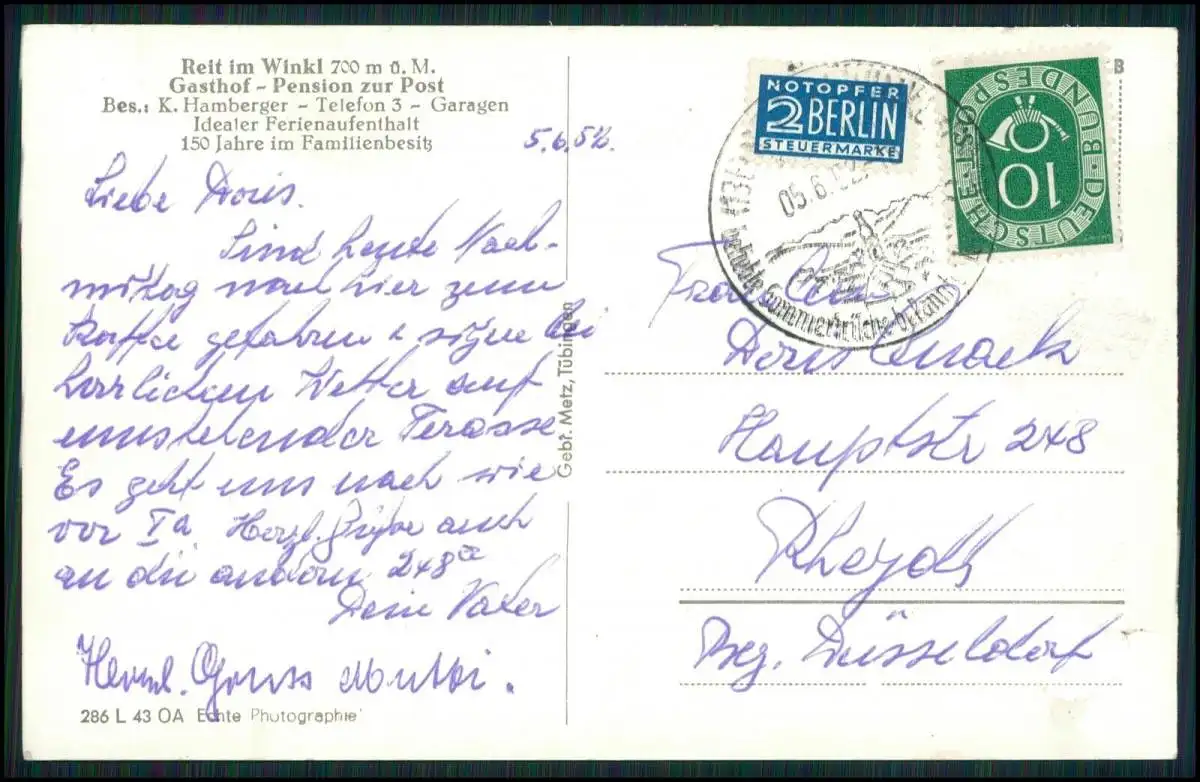 Reit im Winkl 700 m ü. M.
Gasthof - Pension zur Post
Bes.: K. Hamberger - Telefon 3 - Garagen
Idealer Ferienaufenthalt
150 Jahre im Familienbesitz
5.6.52.
Liebe Doris.
Sind heute Nach-
mittag nach hier zum
Kaffee gefahren & sitzen bei
herrlichem Wetter auf
umstehender Terasse
Es geht uns nach wie
vor Ia. Herzl. Grüße auch
an die andern 248er
Dein Vater
Herzl. Gruss Mutti.
286 L 43 OA Echte Photographie
Gebr. Metz, Tübingen
NOTOPFER
2 BERLIN
STEUERMARKE
DEUTSCHE BUNDESPOST
10
05.6.52
beliebte Sommerfrische bekannt
Fräulein
Doris
Hauptstr 248
Rheydt
Bez. Düsseldorf